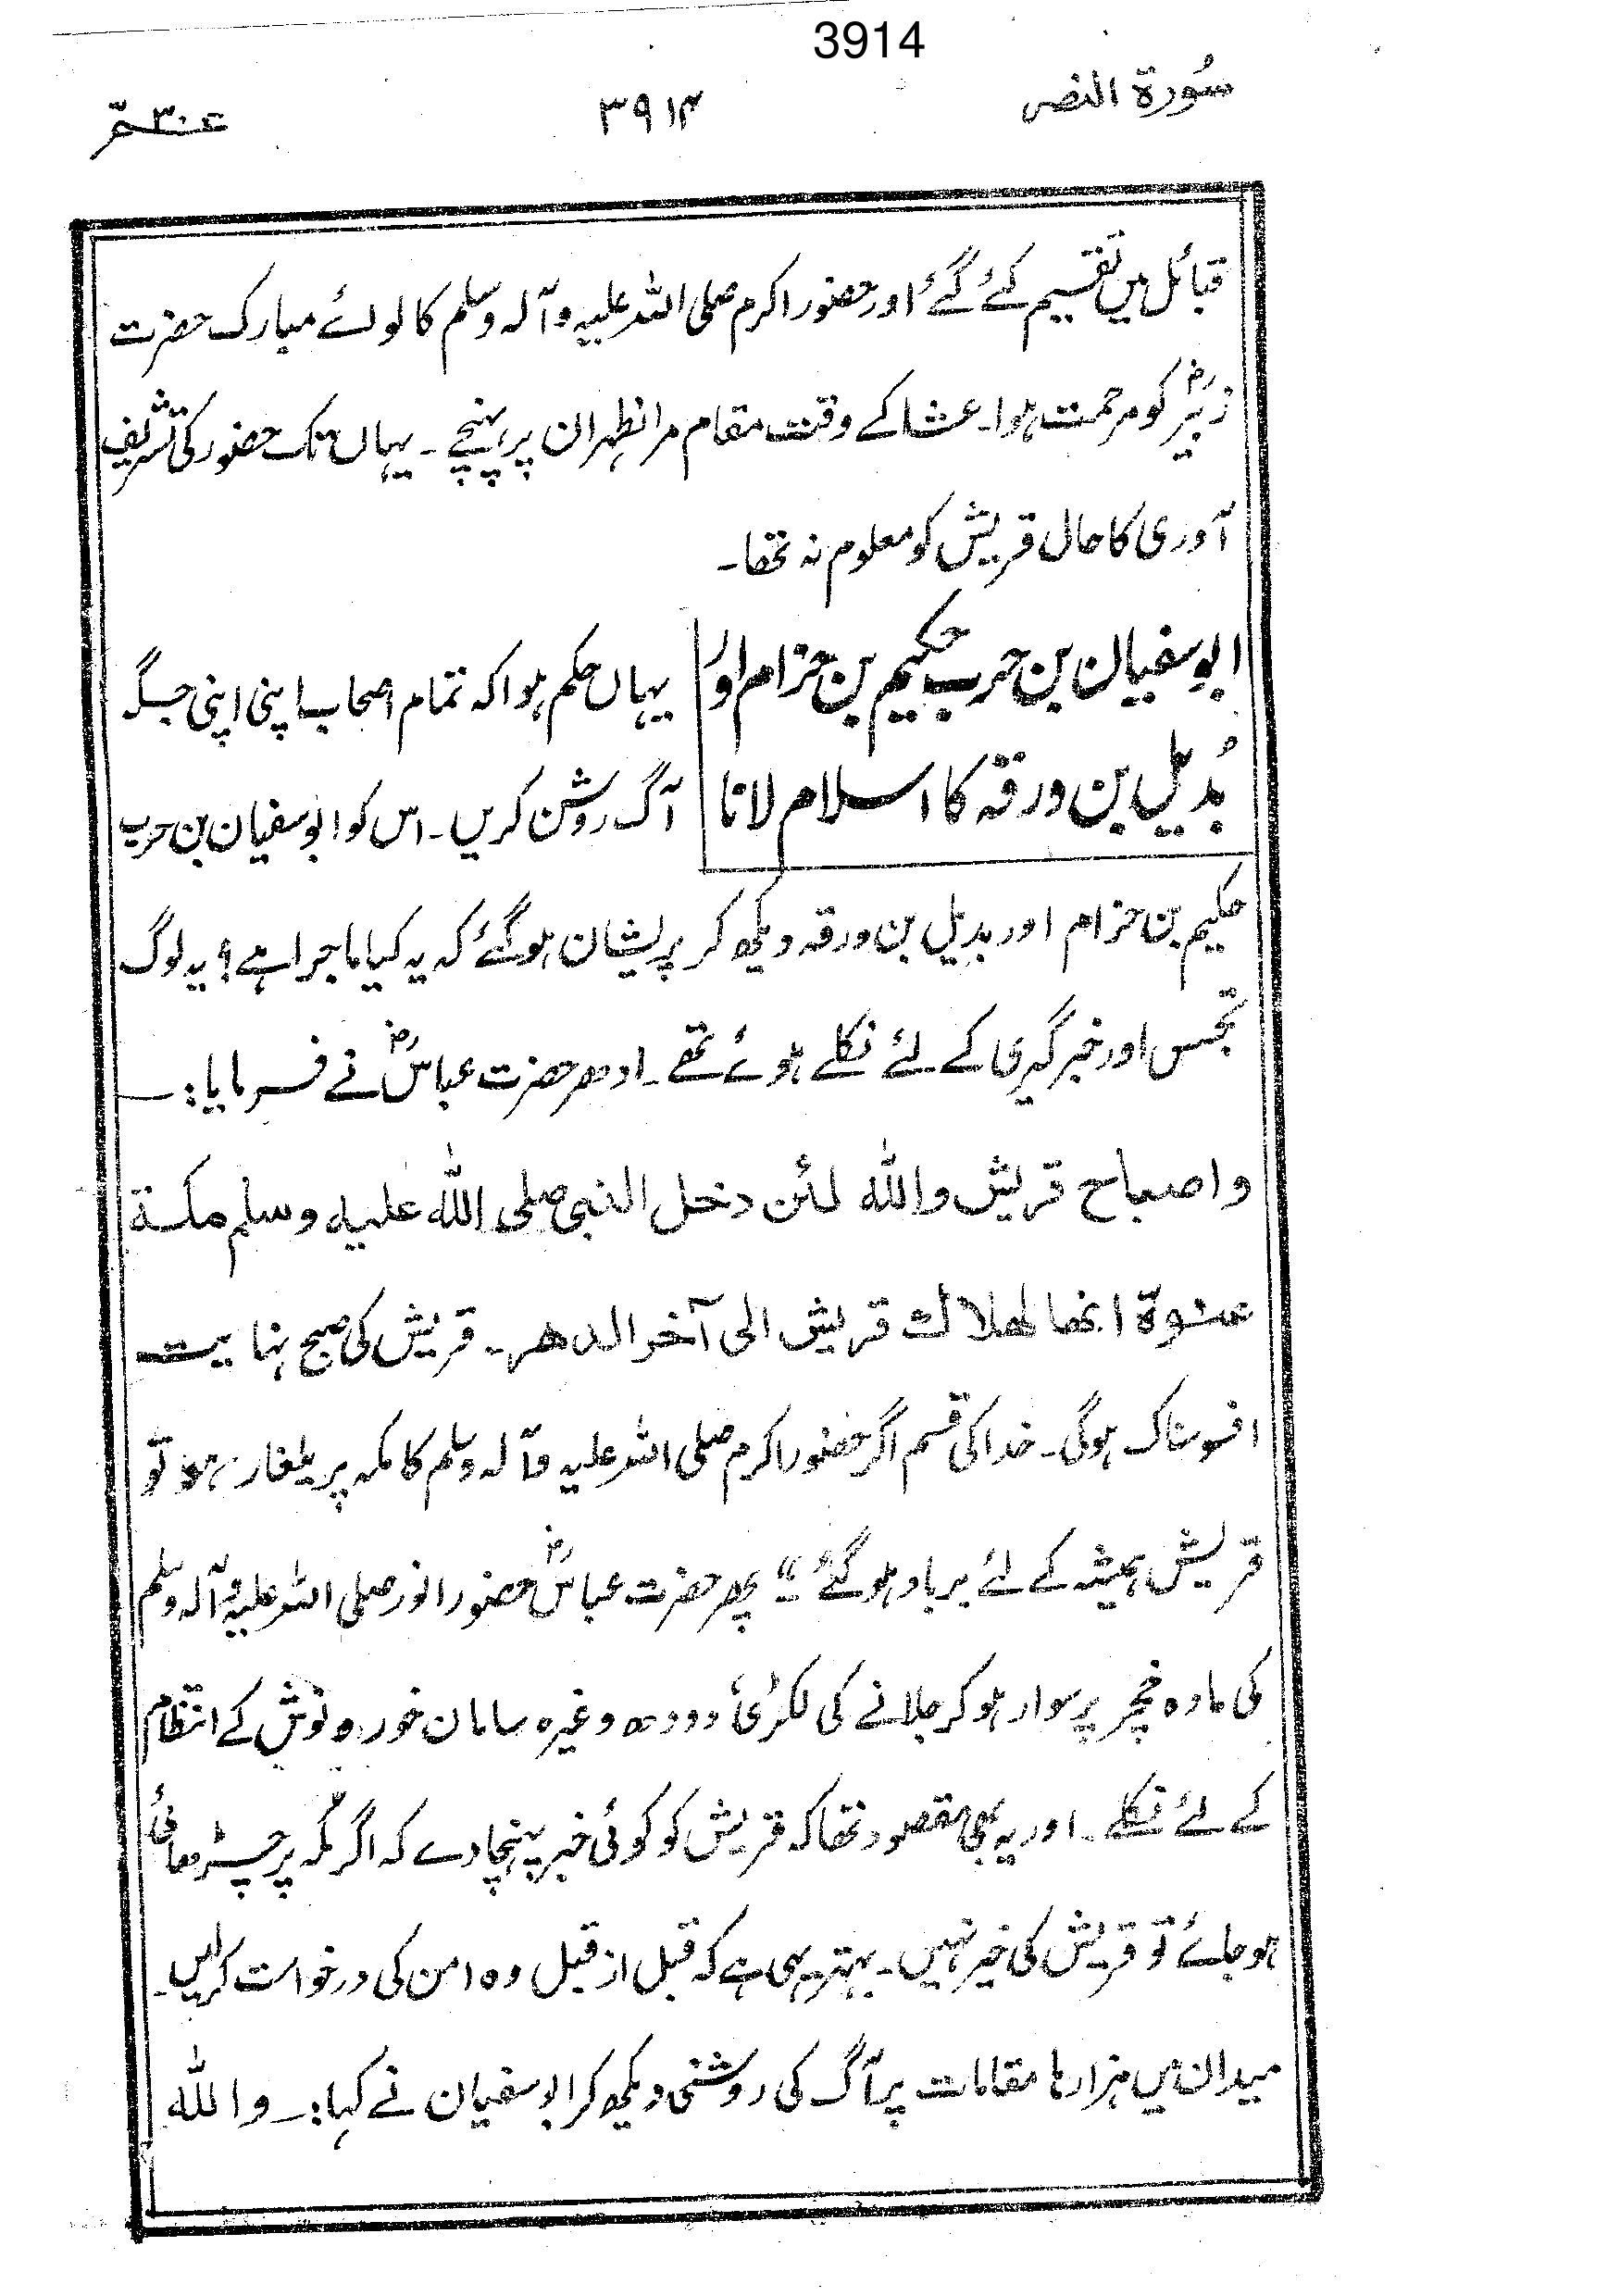 3914
سُورة النصر
۳۹۱۴
عۃ ۳۰
قبائل میں تقسیم کئے گئے اور حضور اکرم صلی اللہ علیہ وآلہ وسلم کا لوائے مبارک حضرت
زبیرؓ کو مرحمت ہوا۔ عشا کے وقت مقام مرالظہران پر پہنچے۔ یہاں تک حضور کی تشریف
آوری کا حال قریش کو معلوم نہ تھا۔
ابوسفیان بن حرب حکیم بن حزام اور
بُدیل بن ورقہ کا اسلام لانا
یہاں حکم ہوا کہ تمام اصحاب اپنی اپنی جگہ
آگ روشن کریں۔ اس کو ابوسفیان بن حرب
حکیم بن حزام اور بدیل بن ورقہ دیکھ کر پریشان ہوگئے کہ یہ کیا ماجرا ہے؟ یہ لوگ
تجسس اور خبرگیری کے لئے نکلے ہوئے تھے۔ ادھر حضرت عباسؓ نے فرمایا:۔
واصباح قریش واللہ لئن دخل النبی صلی اللہ علیہ وسلم مکۃ
عنوۃ انھا لھلاك قریش الی آخر الدھر۔ قریش کی صبح نہایت
افسوسناک ہوگی۔ خدا کی قسم اگر حضور اکرم صلی اللہ علیہ وآلہ وسلم کا مکہ پر یلغار ہوا تو
قریش ہمیشہ کے لئے برباد ہوگئے۔" پھر حضرت عباسؓ حضور انور صلی اللہ علیہ وآلہ وسلم
کی مادہ خچر پر سوار ہوکر جلانے کی لکڑی، دودھ وغیرہ سامان خورد و نوش کے انتظام
کے لئے نکلے۔ اور یہ بھی مقصود تھا کہ قریش کو کوئی خبر پہنچا دے کہ اگر مکہ پر چڑھائی
ہوجائے تو قریش کی خیر نہیں۔ بہتر یہی ہے کہ قبل از قبل وہ امن کی درخواست کرلیں۔
میدان میں ہزارہا مقامات پر آگ کی روشنی دیکھ کر ابوسفیان نے کہا:۔ واللہ